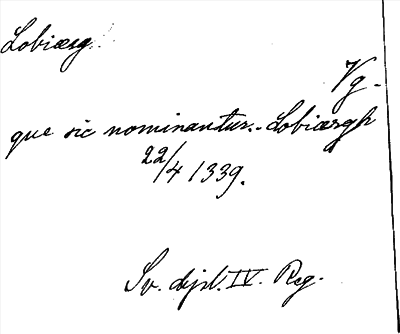 Lobiærg.
Vg.
que sic nominantur.. Lobiærgh
22/4 1339.
Sv. dipl. IV. Reg.